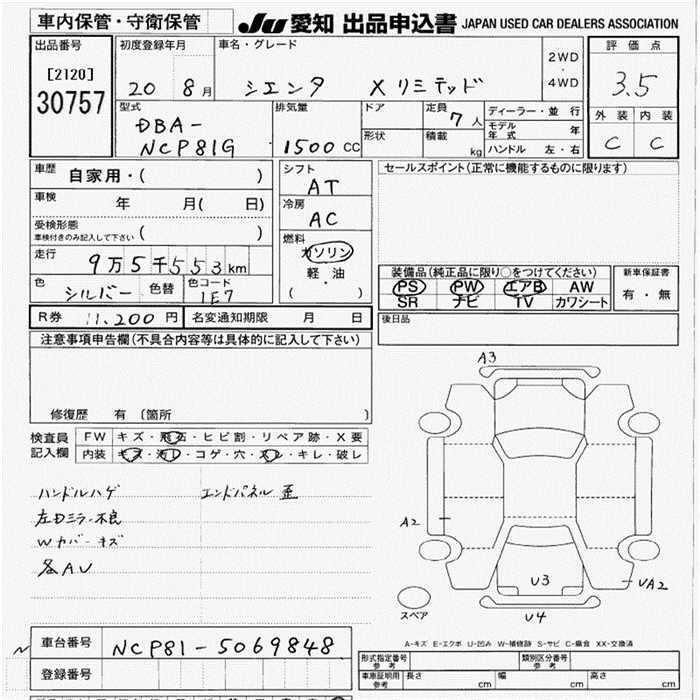 車内保管・守衛保管 JU 愛知 出品申込書 JAPAN USED CAR DEALERS ASSOCIATION
出品番号 初度登録年月 車名・グレード 2WD ・ 4WD 評価点
[2120] 20 8月 シエンタ Xリミテッド 3.5
30757 型式 排気量 ドア 定員 7人 ディーラー・並行 外装 内装
DBA- モデル年式 年 C C
NCP81G 1500CC 形状 積載 kg ハンドル 左・右
車歴 自家用・( ) シフト AT セールスポイント(正常に機能するものに限ります)
車検 年 月( 日) 冷房 AC
受検形態 車検付きのみ記入して下さい ( ) 燃料 ガソリン
走行 9万5千553km 軽油 装備品(純正品に限り○をつけてください) 新車保証書
色 シルバー 色替 色コード 1E7 ・ ( ) PS PW エアB AW 有・無
SR ナビ TV カワシート
R券 11,200円 名変通知期限 月 日 後日品
注意事項申告欄(不具合内容等は具体的に記入して下さい)
修復歴 有 〔箇所 〕
検査員記入欄 FW キズ・飛石・ヒビ割・リペア跡・X要
内装 キズ・汚レ・コゲ・穴・スレ・キレ・破レ
ハンドルハゲ エンドパネル歪
左Dミラー不良
Wカバーキズ
各AU
A3
A2
U3
UA2
U4
スペア
A-キズ E-エクボ U-凹み W-補修跡 S-サビ C-腐食 XX-交換済
N 車台番号 NCP81-5069848
登録番号
形式指定番号 参考 類別区分番号 参考
車庫証明用 参考 長さ cm 幅 cm 高さ cm